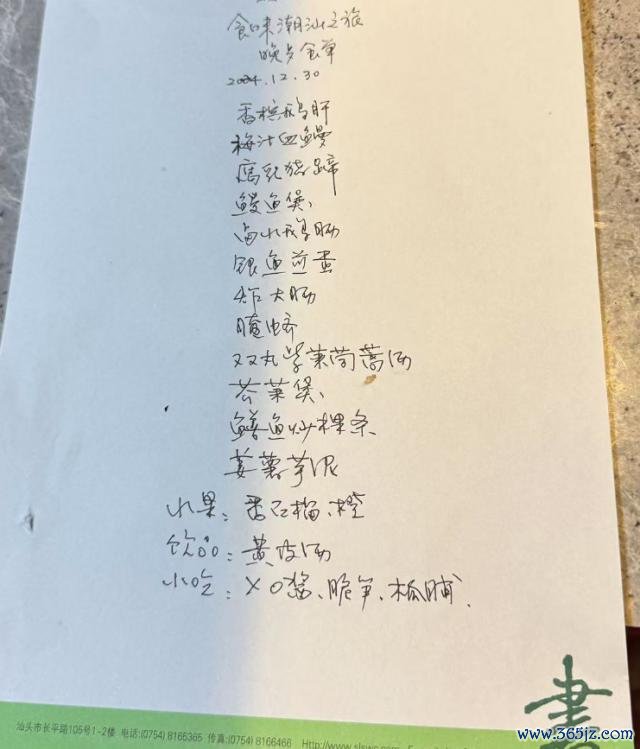 食味潮汕之旅
晚步食单
2004.12.30
香槟鹅肝
梅汁血鳗
腐乳猪蹄
鳗鱼煲
卤水鹅肠
银鱼煎蛋
炸大肠
腌虾
双丸紫菜茼蒿汤
芥菜煲
鳝鱼炒粿条
姜薯芋泥
水果：番石榴、橙
饮品：黄皮汤
小吃：XO酱、脆笋、杨脯.
書
汕头市长平路105号1-2楼 电话:(0754) 8165365 传真:(0754) 8166466 Http://www.
www.365jz.com